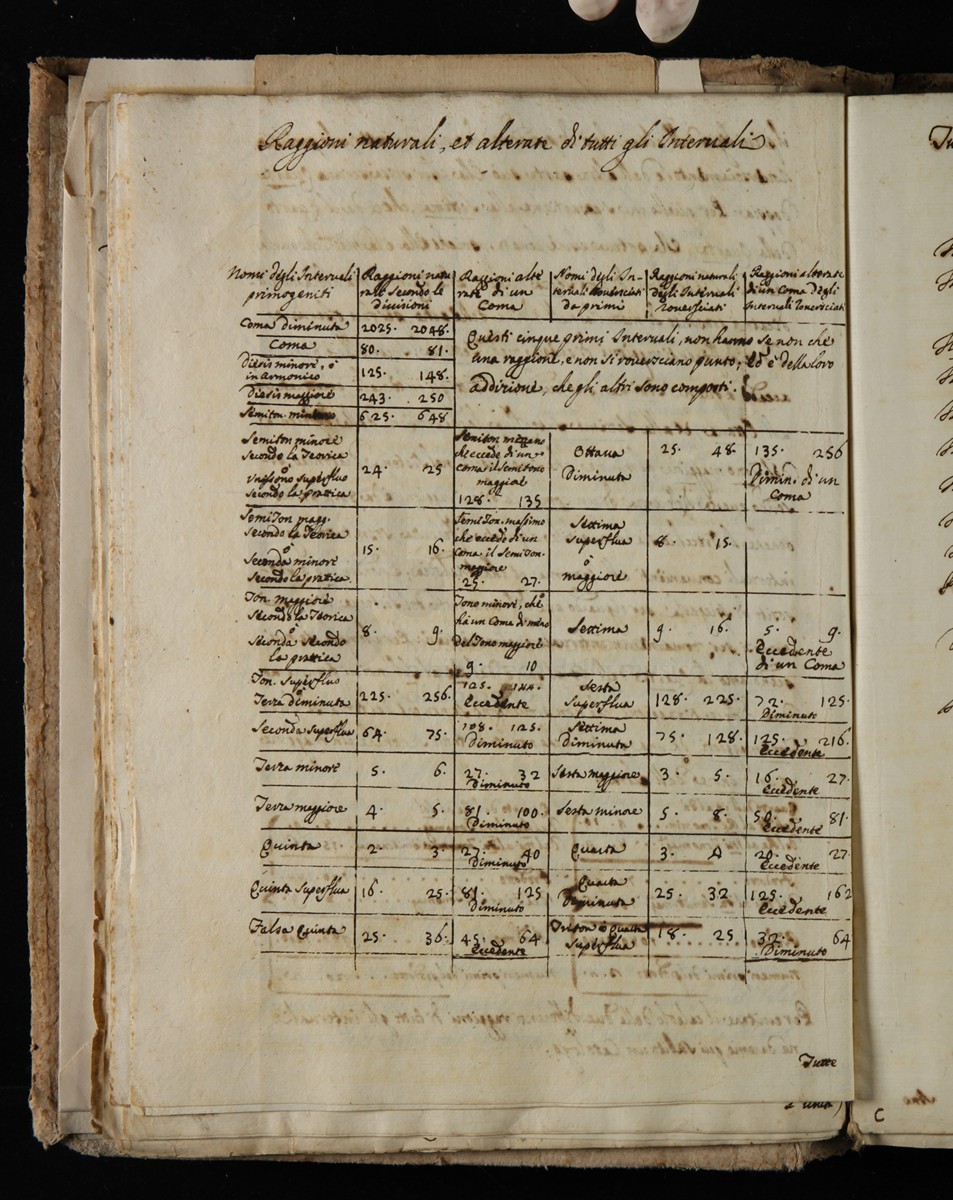 Raggioni naturali, et alterate di tutti gli Interuali
Nomi degli Interuali primogeniti | Raggioni naturali secondo le divisioni | Raggioni alterate di un Coma | Nomi degli Interuali rouersciati da primi | Raggioni naturali degli Interuali rouersciati | Raggioni alterate di un Coma degli Interuali rouersciati
Coma diminuta 2025. 2048.
Coma 80. 81.
Diesis minore, ò in armonico 125. 148.
Diesis maggiore 243. 250
Semiton. minimo 625. 648
Questi cinque primi Interuali, non hanno se non che
una raggione, e non si rouersciano punto, ed è della loro
addizione, che gli altri sono composti.
Semiton minore secondo la Teorica ò unissono superfluo secondo la prattica | 24. 25 | Semiton mezzano che eccede di un coma il semitono maggior 128. 135 | Ottaua Diminuta | 25. 48. | 135. 256 Dimin. di un Coma
SemiTon magg. secondo la Teorica ò seconda minore secondo la prattica. | 15. 16. | SemiTon. massimo che eccede di un Coma il SemiTon. maggiore 25. 27. | Settima superflua ò maggiore | 8. 15.
Ton. maggiore secondo la Teorica ò seconda secondo la prattica | 8. 9. | Tono minore, che há un Coma di meno del Tono maggiore 9. 10 | Settima | 9. 16. | 5. 9. Eccedente di un Coma
Ton. superfluo ò Terza diminuta | 225. 256. | 125. 144. Eccedente | Sesta superflua | 128. 225. | 72. 125. Diminuto
Seconda superflua | 64. 75. | 108. 125. Diminuto | Settima Diminuta | 75. 128. | 125. 216. Eccedente
Terza minore | 5. 6. | 27. 32 Diminuto | Sesta maggiore | 3. 5. | 16. 27. Eccedente
Terza maggiore | 4. 5. | 81. 100. Diminuto | Sesta minore | 5. 8. | 50. 81. Eccedente
Quinta | 2. 3. | 27. 40 Diminuto | Quarta | 3. 4 | 20. 27. Eccedente
Quinta superflua | 16. 25. | 81. 125 Diminuto | Quarta Diminuta | 25. 32 | 125. 162 Eccedente
Falsa Quinta | 25. 36. | 45. 64 Eccedente | Triton ò Quarta superflua | 18. 25 | 32. 64 Diminuto
Tutte
C